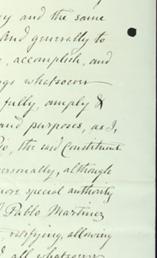 and the same
and generally to
, accomplish, and
whatsoever
fully, amply &
and purposes, as I,
do, the said Constituent
personally, although
more special authority
Pablo Martinez
ratifying, allowing
all whatsoever